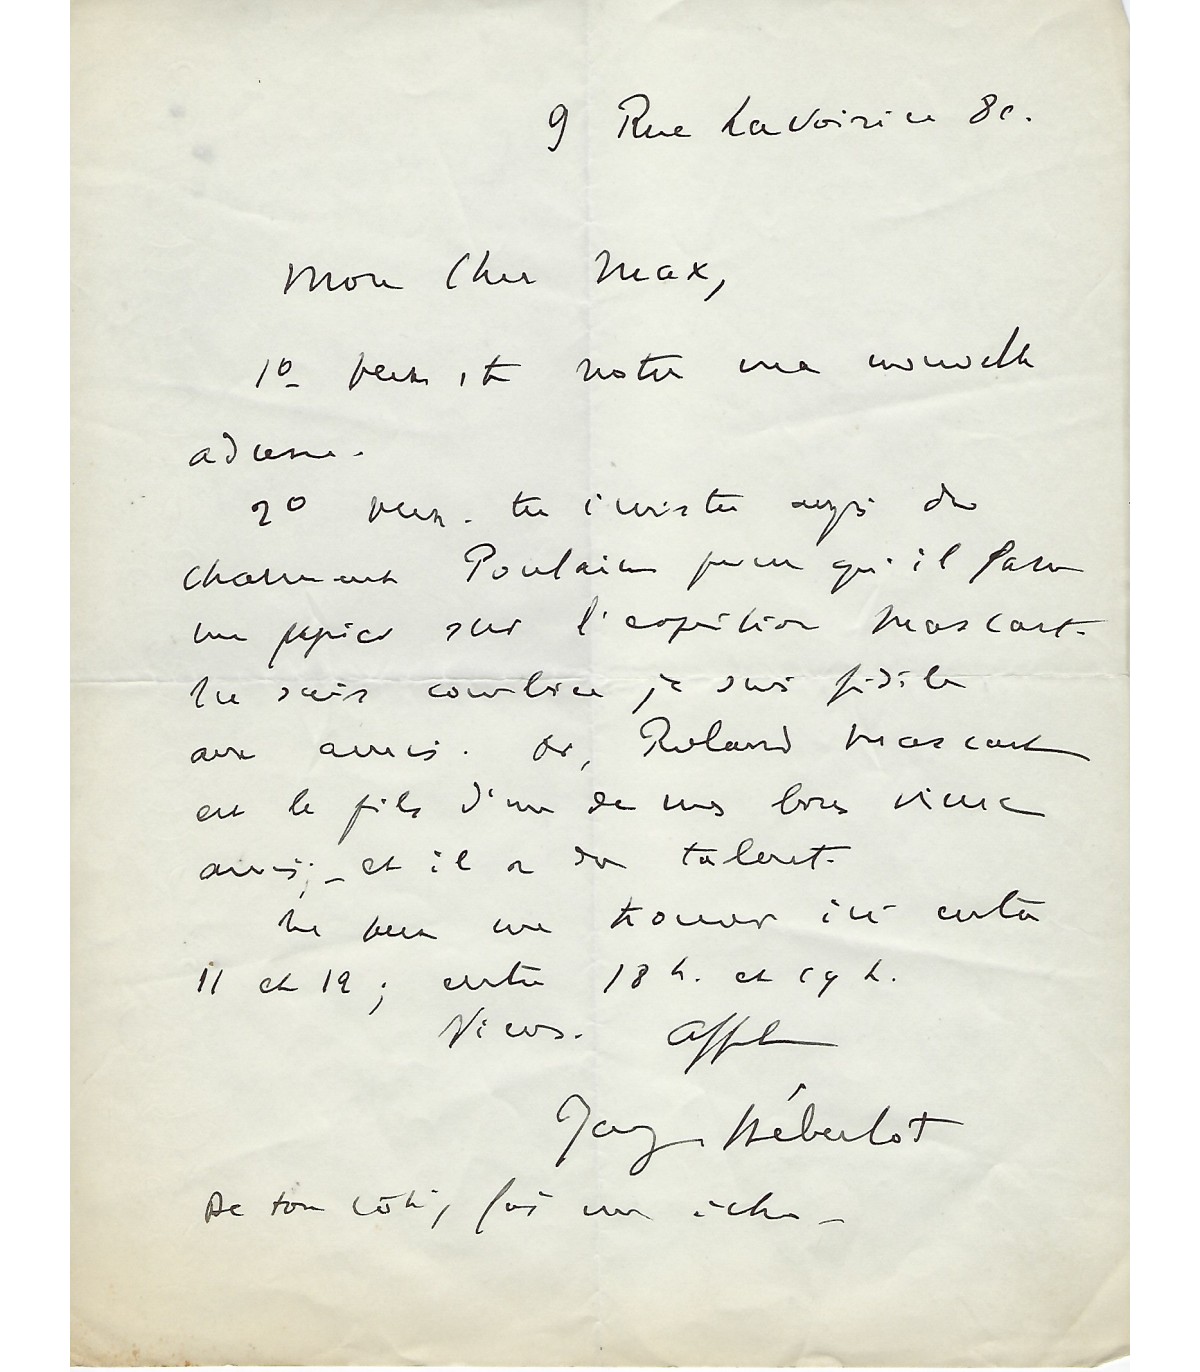 9 Rue Lavoisier 8e.
Mon Cher Max,
1º veux-tu noter ma nouvelle
adresse.
2º veux-tu insister auprès du
charmant Poulain pour qu'il fasse
un papier sur l'exposition Mascart.
Tu sais combien je suis fidèle
aux amis. Or, Roland Mascart
est le fils d'un de mes bons vieux
amis; - et il a du talent.
Tu peux me trouver ici entre
11 et 12; entre 18 h. et 19 h.
Viens. Afft
Jacques Hébertot
De ton côté, fais un écho -